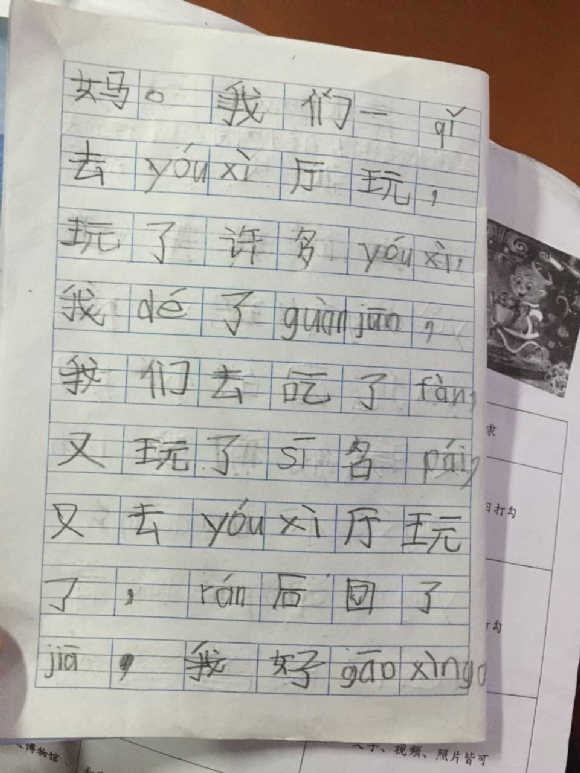 妈。我们一qǐ
去yóuxì厅玩，
玩了许多yóuxì，
我dé了guànjūn，
我们去吃了fàn，
又玩了sī名pái，
又去yóuxì厅玩
了，rán后回了
jiā，我好gāoxìng
求
日打勾
勾
博物馆
文字、视频、照片皆可